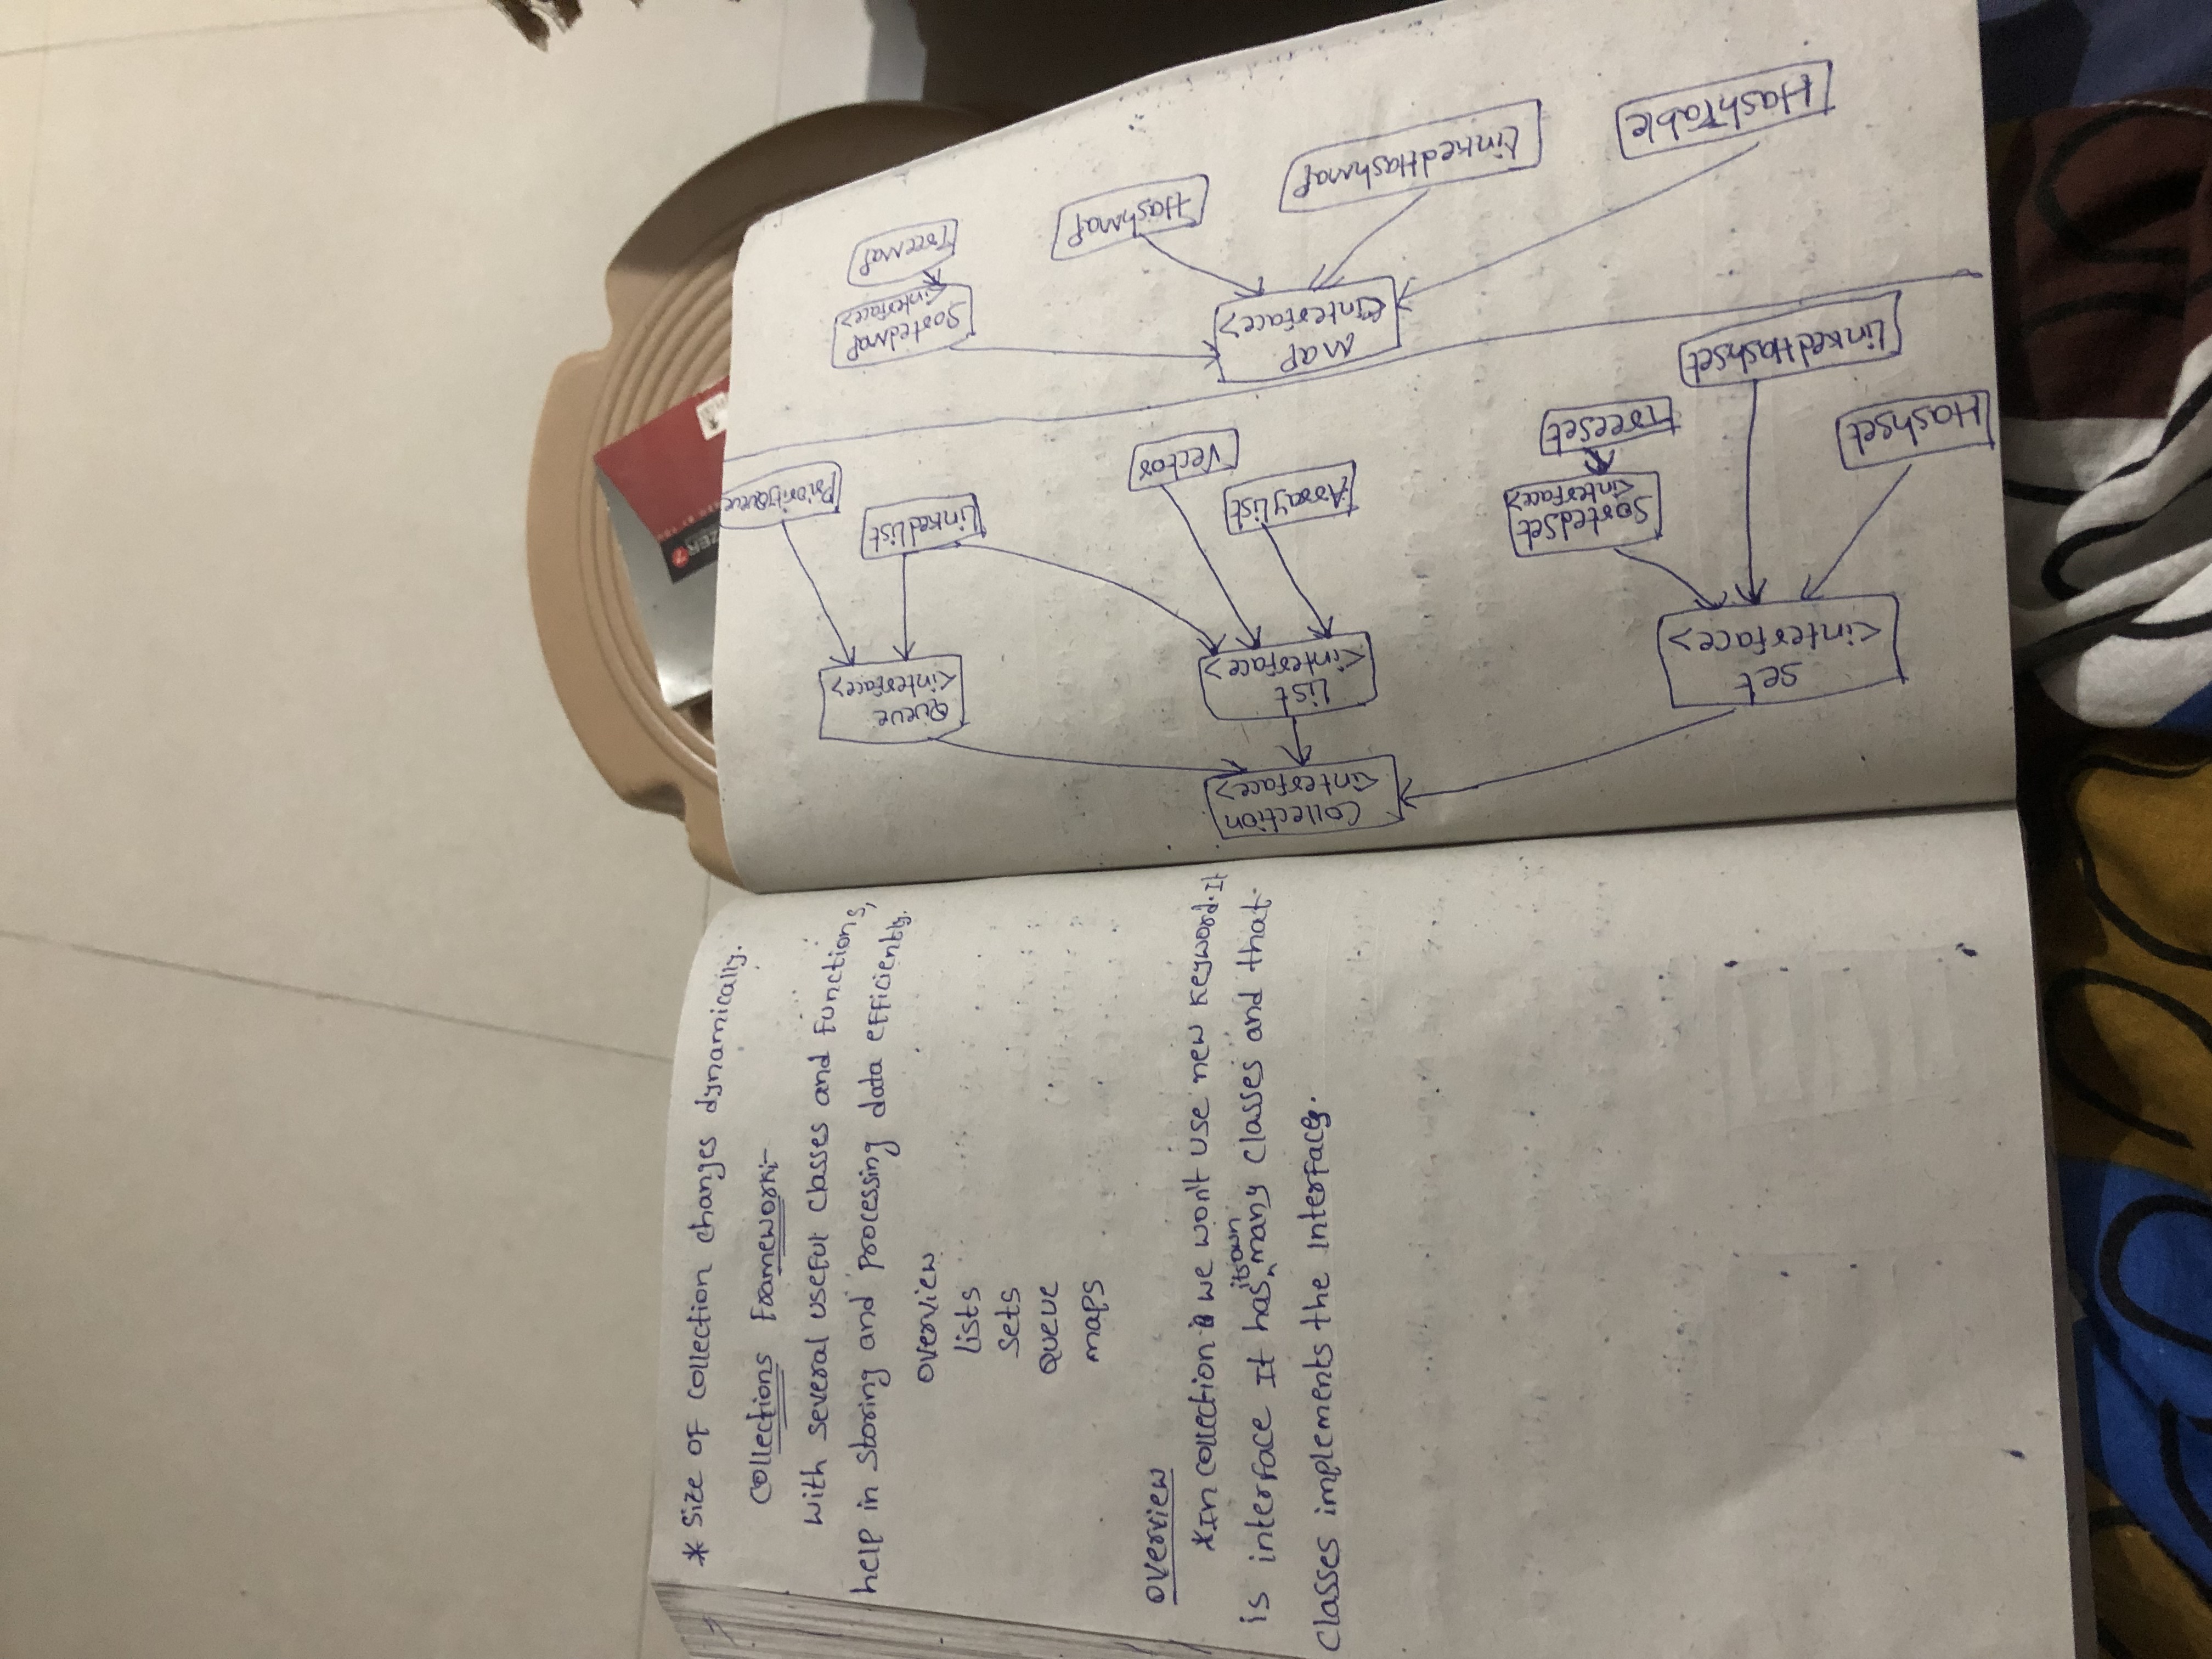 * Size of collection changes dynamically.
Collections Framework:-
With several useful classes and functions,
help in storing and processing data efficiently.
Overview
Lists
Sets
Queue
Maps
Overview
*In collection we won't use new keyword. It
is interface It has its own many classes and that
classes implements the Interfaces.
Collection
<interface>
Set
<interface>
List
<interface>
Queue
<interface>
SortedSet
<interface>
TreeSet
HashSet
LinkedHashSet
ArrayList
Vector
LinkedList
PriorityQueue
Map
<interface>
SortedMap
<interface>
TreeMap
HashTable
LinkedHashMap
HashMap